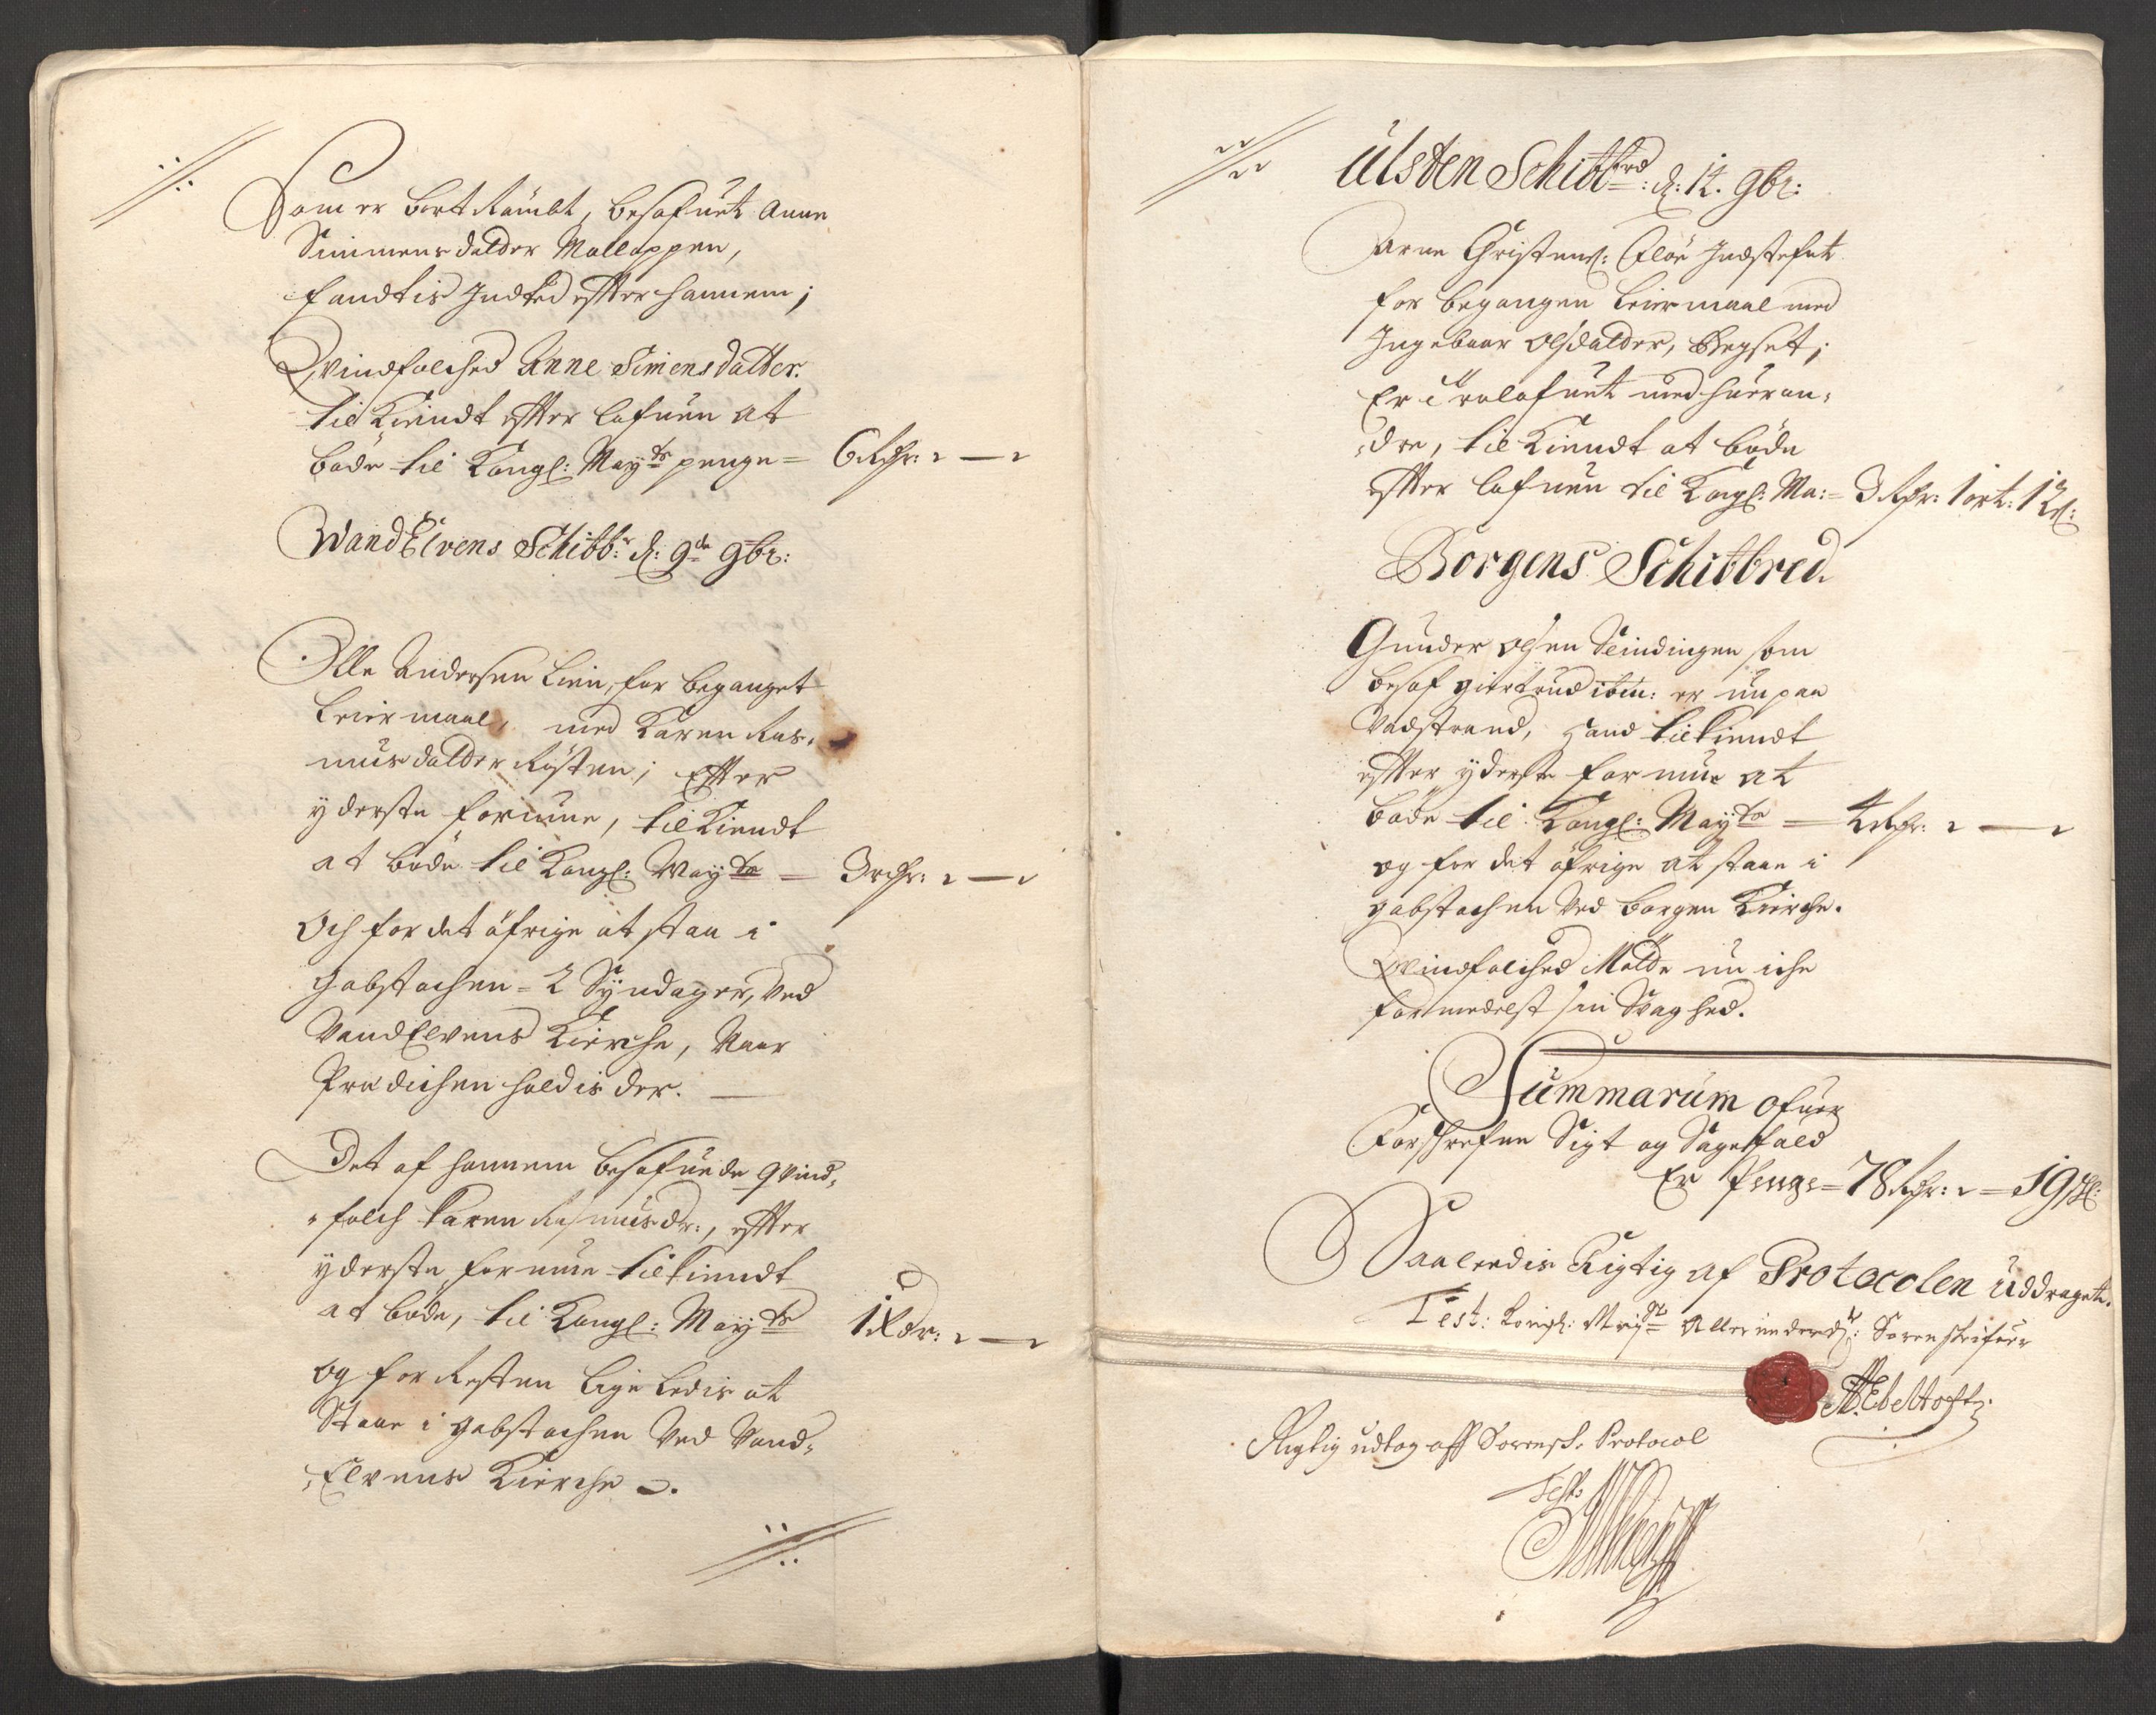 Som er bort Römbt, besofuet Anne
Simmensdatter Molloppen,
fandtis Indted effter hannem;
Qvindfolched Anne Simensdatter.
til Kiendt effter lofuen at
böde til Kongl: Mayts penge = 6 Rdr: 2 — 2
WandElvens Schibb:r d: 9de 9br:
Olle Andersen Lien, for beganget
Leiermaal, med Karen Ras,
musdatter Røsten; Effter
yderste formue, tilkiendt
at böde til Kongl: Mayts — 3 rdr: 2 — 2
Och for det öfrige at staa i
gabstochen = 2 Syndager, ved
VandElvens Kierche, Naar
Prædichen holdis der. —
Det af hannem besofuede qvind,
folch Karen Rasmusdr:, effter
yderste formue tilkiendt
at böde, til Kongl: Mayts 1 Rdr: 2 — 2
og for Resten lige ledis at
Staae i gabstochen ved Vand,
Elvens Kierche.
Ulsten Schibbrd: d: 12. 9br:
Arne Christens: Floe Indstefnt
for begangen Leiermaal med
Ingebaar Olsdatter, Begset;
Er trolofuet med hueran,
dre, til Kiendt atböde
effter lofuen til Kongl: Ma: = 3 Rdr: 1 ort: 12 s:
Borgens Schibbred.
Gunder Olsen Slindingen som
besof giertrud ibm: er nu paa
Vadstrand, Hand tilkiendt
effter yderste formue at
böde til Kongl: Mayts — 4 Rdr: 2 — 2
og for det öfrige at staae i
gabstochen ved borgen Kierche.
Qvindfolched Mötte nu iche
formedelst sin Svaghed.
Summarum ofuer
Forschrefne Sigt og Sagefald
Er Penge = 78 Rdr: 2 = 19 s:
Saaledis Rigtig af Protocolen Uddraget.
Test: Kongl: Mayts Allerunderd: Sorenskrifuer
Ebeltoft
Rigtig udtog aff Sorensk: Protocol
Test: